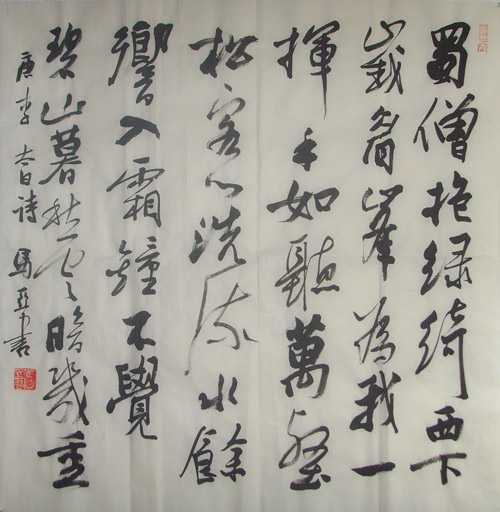 蜀僧抱绿綺西下
峩眉峯為我一
揮手如聽萬壑
松客心洗流水餘
響入霜鐘不覺
碧山暮秋雲暗幾重
唐李太白詩 馬亞書